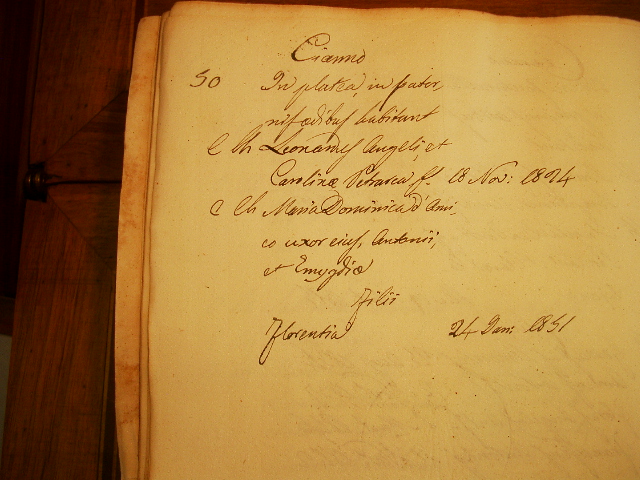 Cianno
50 In platea, in pater,
nis ædibus habitant
C Ch Leonardus Angeli, et
Carolinæ Petrarca f. 18 Nov: 1824
C Ch Maria Dominica d'Ami,
co uxor eius, Antonii,
et Emygdiæ
Filii
Florentia 24 Jan: 1851